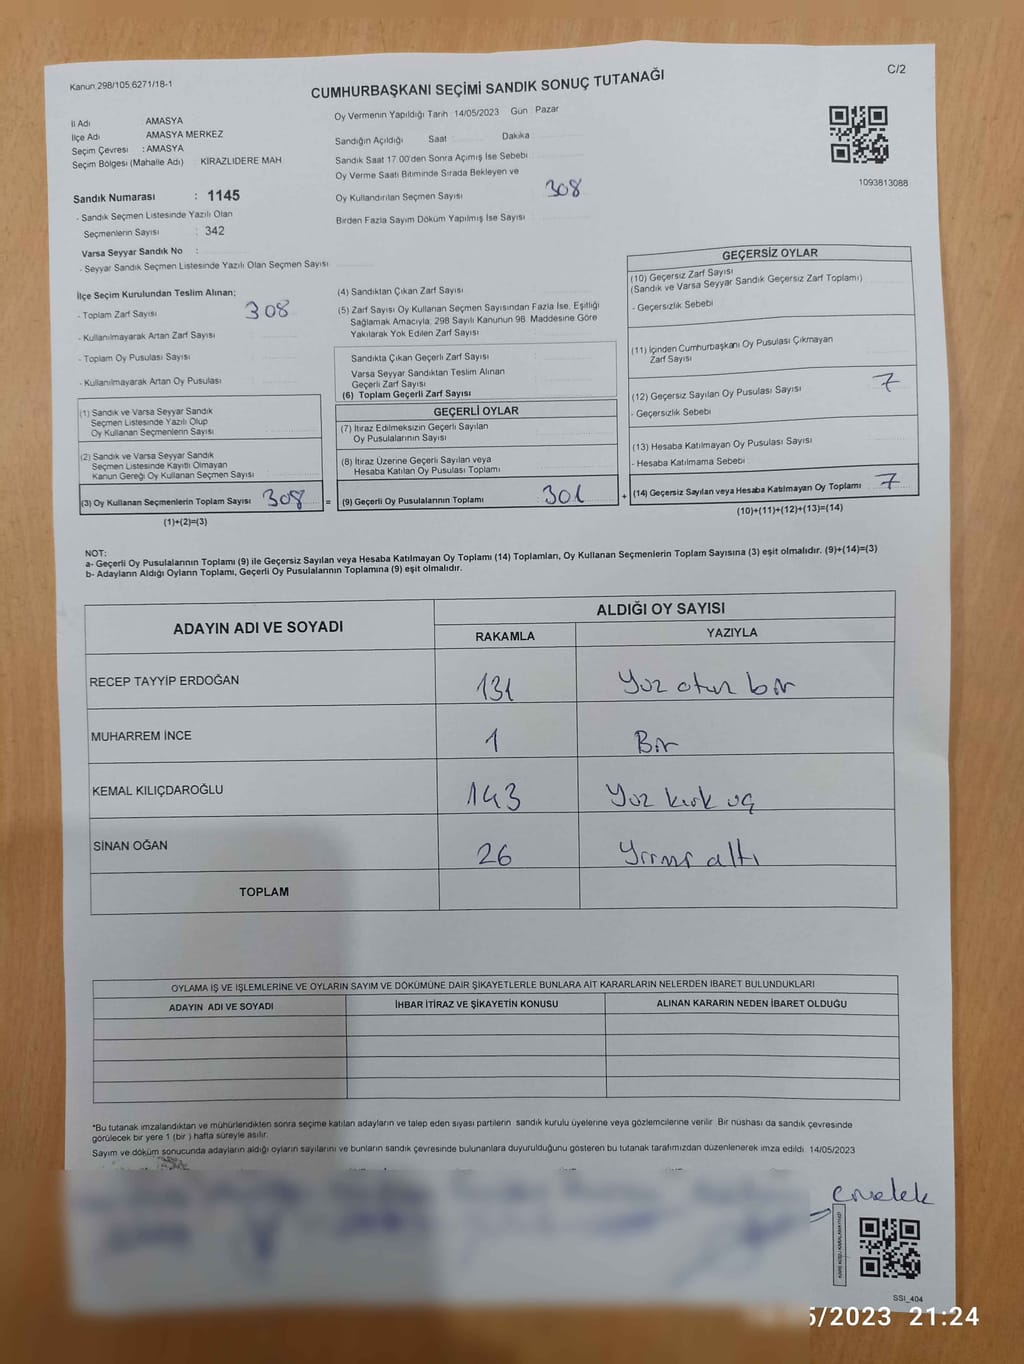 Kanun:298/105,6271/18-1
C/2
CUMHURBAŞKANI SEÇİMİ SANDIK SONUÇ TUTANAĞI
İl Adı AMASYA
İlçe Adı AMASYA MERKEZ
Seçim Çevresi : AMASYA
Seçim Bölgesi (Mahalle Adı) KİRAZLIDERE MAH
Sandık Numarası : 1145
- Sandık Seçmen Listesinde Yazılı Olan
Seçmenlerin Sayısı : 342
Varsa Seyyar Sandık No :
- Seyyar Sandık Seçmen Listesinde Yazılı Olan Seçmen Sayısı
Oy Vermenin Yapıldığı Tarih : 14/05/2023 Gün : Pazar
Sandığın Açıldığı Saat Dakika
Sandık Saat 17.00'den Sonra Açımış İse Sebebi
Oy Verme Saati Bitiminde Sırada Bekleyen ve
Oy Kullandırılan Seçmen Sayısı 308
Birden Fazla Sayım Döküm Yapılmış İse Sayısı
1093813088
İlçe Seçim Kurulundan Teslim Alınan;
- Toplam Zarf Sayısı 308
- Kullanılmayarak Artan Zarf Sayısı
- Toplam Oy Pusulası Sayısı
- Kullanılmayarak Artan Oy Pusulası
(1) Sandık ve Varsa Seyyar Sandık
Seçmen Listesinde Yazılı Olup
Oy Kullanan Seçmenlerin Sayısı
(2) Sandık ve Varsa Seyyar Sandık
Seçmen Listesinde Kayıtlı Olmayan
Kanun Gereği Oy Kullanan Seçmen Sayısı
(3) Oy Kullanan Seçmenlerin Toplam Sayısı 308 =
(1)+(2)=(3)
(4) Sandıktan Çıkan Zarf Sayısı
(5) Zarf Sayısı Oy Kullanan Seçmen Sayısından Fazla İse, Eşitliği
Sağlamak Amacıyla; 298 Sayılı Kanunun 98. Maddesine Göre
Yakılarak Yok Edilen Zarf Sayısı
Sandıkta Çıkan Geçerli Zarf Sayısı
Varsa Seyyar Sandıktan Teslim Alınan
Geçerli Zarf Sayısı
(6) Toplam Geçerli Zarf Sayısı
GEÇERLİ OYLAR
(7) İtiraz Edilmeksizin Geçerli Sayılan
Oy Pusulalarının Sayısı
(8) İtiraz Üzerine Geçerli Sayılan veya
Hesaba Katılan Oy Pusulası Toplamı
(9) Geçerli Oy Pusulalarının Toplamı 301 +
GEÇERSİZ OYLAR
(10) Geçersiz Zarf Sayısı
(Sandık ve Varsa Seyyar Sandık Geçersiz Zarf Toplamı)
- Geçersizlik Sebebi
(11) İçinden Cumhurbaşkanı Oy Pusulası Çıkmayan
Zarf Sayısı
(12) Geçersiz Sayılan Oy Pusulası Sayısı 7
- Geçersizlik Sebebi
(13) Hesaba Katılmayan Oy Pusulası Sayısı
- Hesaba Katılmama Sebebi
(14) Geçersiz Sayılan veya Hesaba Katılmayan Oy Toplamı 7
(10)+(11)+(12)+(13)=(14)
NOT:
a- Geçerli Oy Pusulalarının Toplamı (9) ile Geçersiz Sayılan veya Hesaba Katılmayan Oy Toplamı (14) Toplamları, Oy Kullanan Seçmenlerin Toplam Sayısına (3) eşit olmalıdır. (9)+(14)=(3)
b- Adayların Aldığı Oyların Toplamı, Geçerli Oy Pusulalarının Toplamına (9) eşit olmalıdır.
ADAYIN ADI VE SOYADI ALDIĞI OY SAYISI
RAKAMLA YAZIYLA
RECEP TAYYİP ERDOĞAN 131 Yüz otuz bir
MUHARREM İNCE 1 Bir
KEMAL KILIÇDAROĞLU 143 Yüz kırk üç
SİNAN OĞAN 26 Yirmi altı
TOPLAM
OYLAMA İŞ VE İŞLEMLERİNE VE OYLARIN SAYIM VE DÖKÜMÜNE DAİR ŞİKAYETLERLE BUNLARA AİT KARARLARIN NELERDEN İBARET BULUNDUKLARI
ADAYIN ADI VE SOYADI İHBAR İTİRAZ VE ŞİKAYETİN KONUSU ALINAN KARARIN NEDEN İBARET OLDUĞU
*Bu tutanak imzalandıktan ve mühürlendikten sonra seçime katılan adayların ve talep eden siyasi partilerin sandık kurulu üyelerine veya gözlemcilerine verilir. Bir nüshası da sandık çevresinde
görülecek bir yere 1 (bir ) hafta süreyle asılır.
Sayım ve döküm sonucunda adayların aldığı oyların sayılarını ve bunların sandık çevresinde bulunanlara duyurulduğunu gösteren bu tutanak tarafımızdan düzenlenerek imza edildi. 14/05/2023
SSI_404
5/2023 21:24